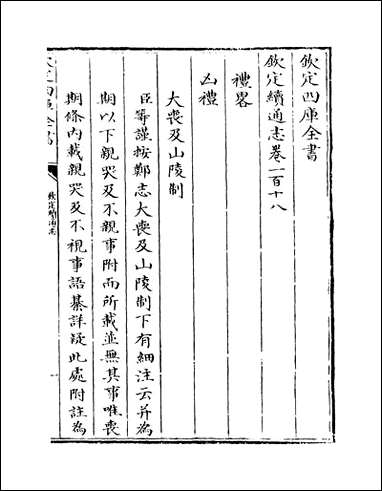 欽定四庫全書
欽定續通志卷一百十八
禮畧
凶禮
大喪及山陵制
臣等謹按鄭志大喪及山陵制下有細注云并為
期以下親哭及不親事附而所載並無其事唯喪
期條内載親哭及不視事語綦詳疑此處附註為
欽定續通志